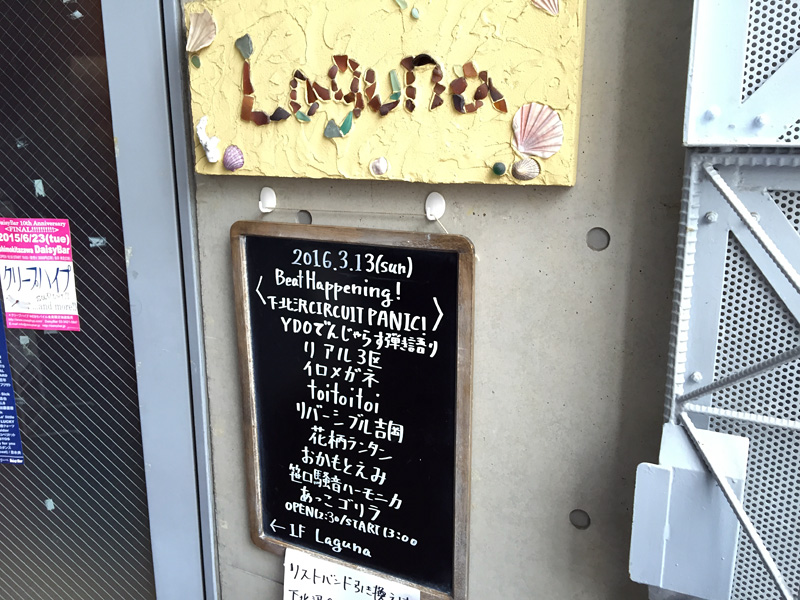 Laguna
2016.3.13(sun)
Beat Happening!
〈下北沢CIRCUIT PANIC!〉
YDOでんじゃらす弾き語り
リアル3区
イロメガネ
toitoitoi
リバーシブル吉岡
花柄ランタン
おかもとえみ
笹口騒音ハーモニカ
あっこゴリラ
OPEN12:30/START13:00
←1F Laguna
リストバンド引き換えは
DaisyBar 10th Anniversary
<FINAL!!!!!!!!!>
2015/6/23(tue)
Shimokitazawa DaisyBar
クリープハイプ
and more